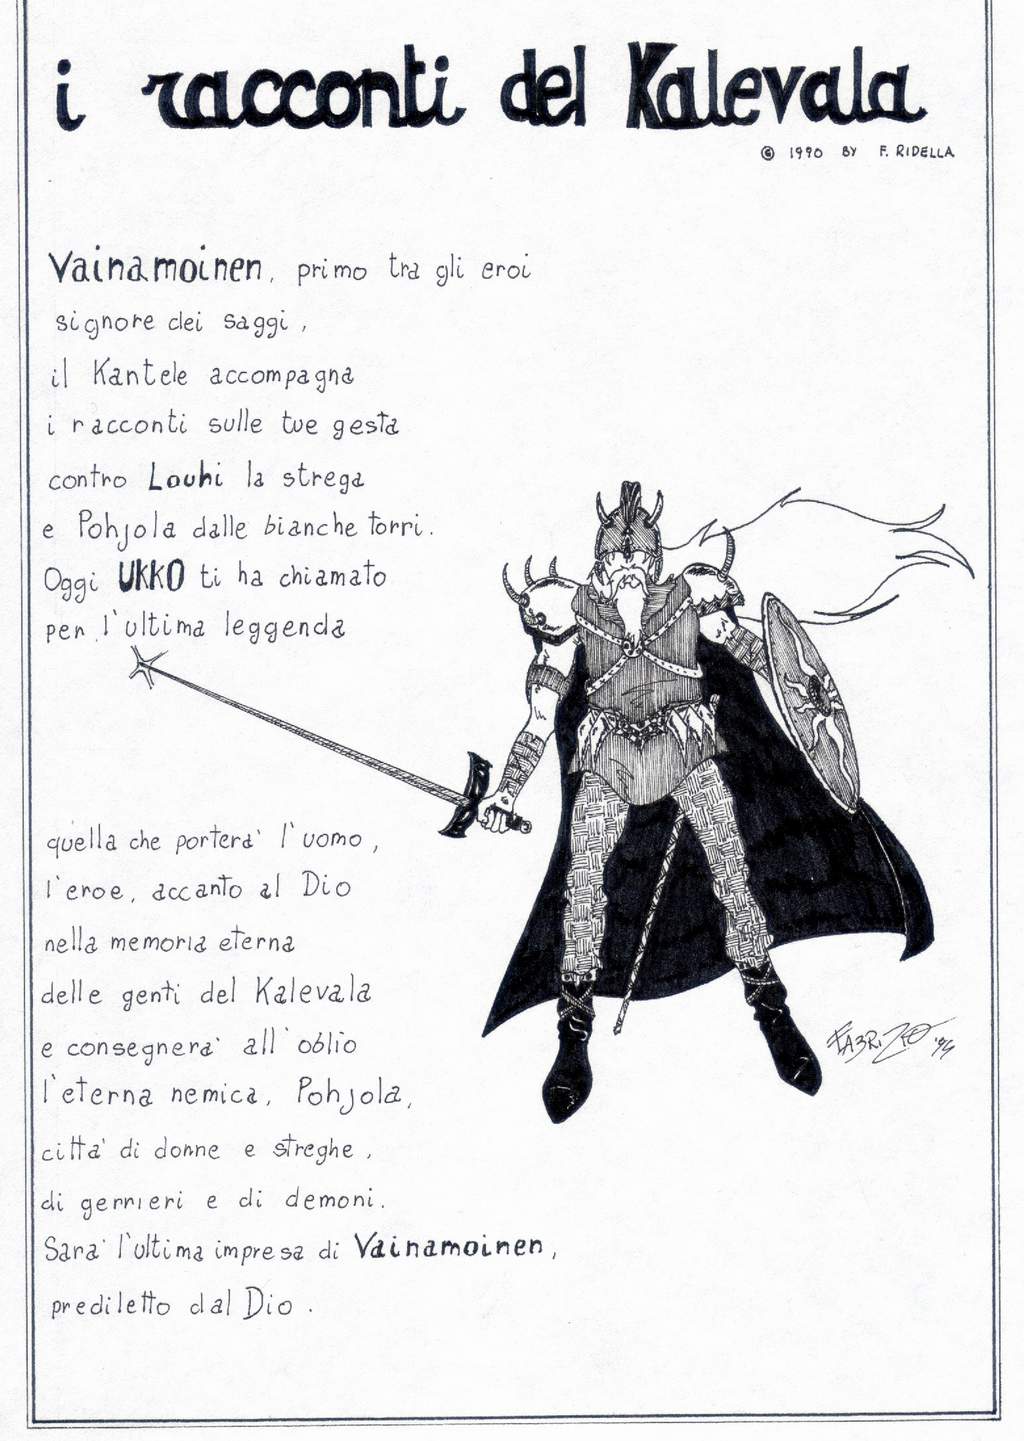 i racconti del Kalevala
© 1990 BY F. RIDELLA
Vainamoinen, primo tra gli eroi
signore dei saggi,
il Kantele accompagna
i racconti sulle tue gesta
contro Louhi la strega
e Pohjola dalle bianche torri.
Oggi UKKO ti ha chiamato
per l'ultima leggenda
quella che portera' l'uomo,
l'eroe, accanto al Dio
nella memoria eterna
delle genti del Kalevala
e consegnera' all'oblio
l'eterna nemica, Pohjola,
citta' di donne e streghe,
di gerrieri e di demoni.
Sara' l'ultima impresa di Vainamoinen,
prediletto dal Dio.
FABRIZIO '94